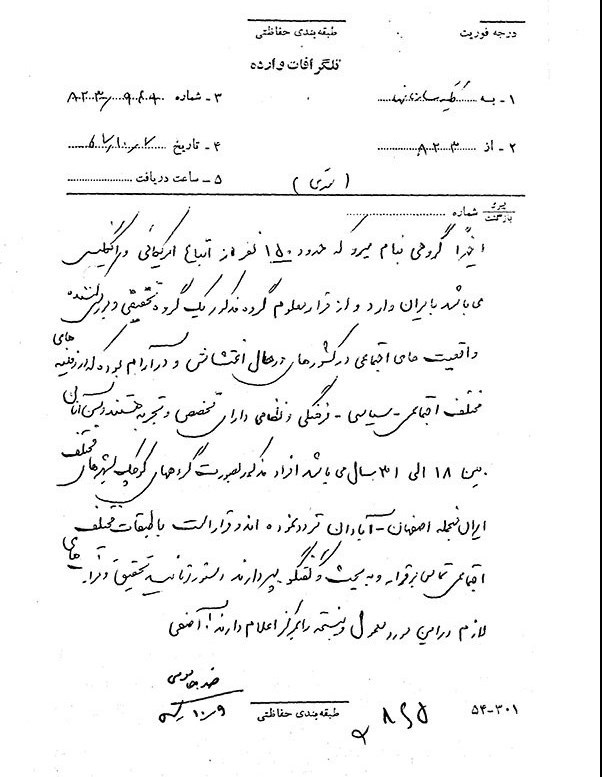 درجه فوریت
طبقه‌بندی حفاظتی
تلگرافات وارده
۱ـ به کلیه سازمانها
۳ـ شماره ۹۶۴۰/۸۲۳
۲ـ از ۸۲۳
۴ـ تاریخ ۷/۱۰/۶۷
(رمزی)
۵ـ ساعت دریافت
پیرو
بازگشت
شماره
اخیراً گروهی بنام میرو که حدود ۱۵۰ نفر از اتباع امریکائی و انگلیس
می باشد بایران وارد و از قرار معلوم گروه مذکور یک گروه تحقیقی و بررسی کننده
واقعیت های اجتماعی در کشورهای درحال اغتشاش و ناآرام بوده که در زمینه های
مختلف اجتماعی - سیاسی - فرهنگی و نظامی دارای تخصص و تجربه هستند و سن آنان
بین ۱۸ الی ۳۱ سال می باشد افراد مذکور بصورت گروههای کوچک بشهرهای مختلف
ایران منجمله اصفهان - آبادان تردد نموده اند و قرار است با طبقات مختلف
اجتماعی تماس برقرار و به بحث و گفتگو بپردازند دستور فرمائید تحقیق و
لازم در این مورد معمول و نتیجه را بمرکز اعلام دارند. آصفی
طبقه‌بندی حفاظتی
۵۴-۳۰۱